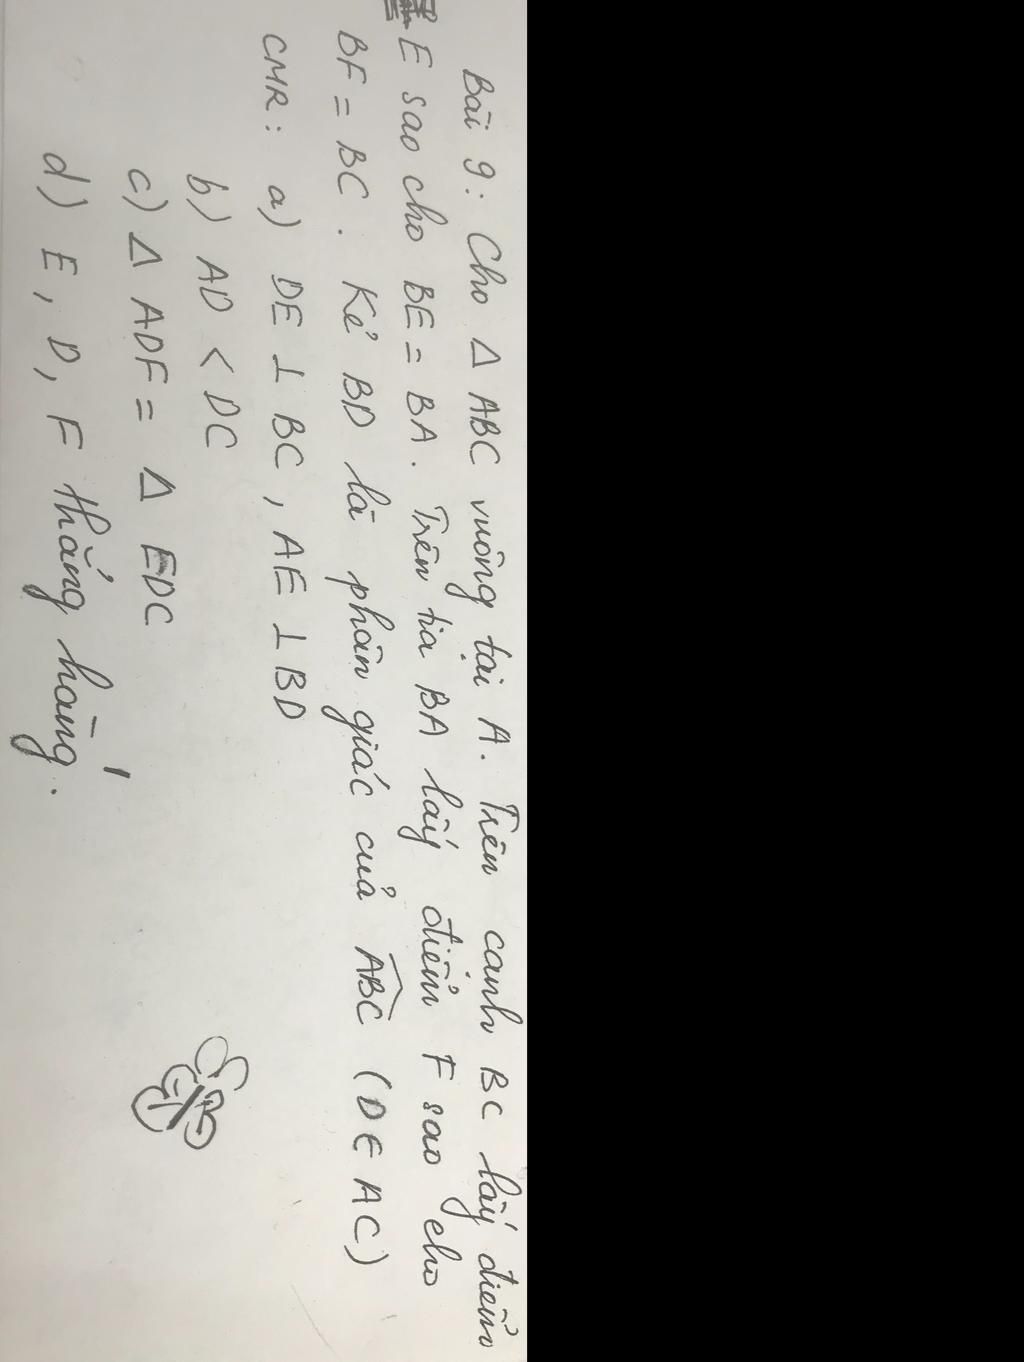 Bài 9: Cho Δ ABC vuông tại A. Trên canh BC lấy điểm
E sao cho BE = BA. Trên tia BA lấy điểm F sao cho
BF = BC. Kẻ BD là phân giác của \widehat{ABC} (D ∈ AC)
CMR: a) DE ⊥ BC, AE ⊥ BD
b) AD < DC
c) Δ ADF = Δ EDC
d) E, D, F thẳng hàng.